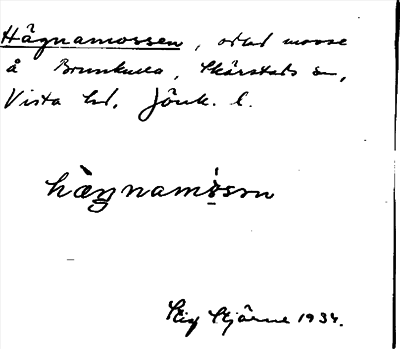 Hägnamossen, odlad mosse
å Brunkulla, Skärstads sn,
Vista hd, Jönk. l.
hàgnamòsən
Stig Stjärne 1934.